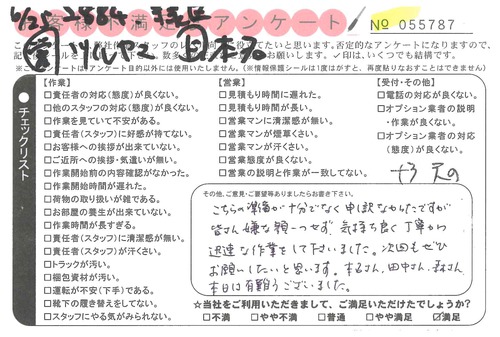 お客様不満足アンケート
No 055787
をいただきたいと思います。否定的なアンケートになりますので、
お願い致します。✓印は、いくつでも結構です。
(このアンケートはアンケート目的以外には使用いたしません。)(※情報保護シールは1度はがすと、再度貼りなおすことはできません)
チェックリスト
【作業】
□責任者の対応(態度)が良くない。
□他のスタッフの対応(態度)が良くない。
□作業を見ていて不安がある。
□責任者(スタッフ)に好感が持てない。
□お客様への挨拶が出来ていない。
□ご近所への挨拶・気遣いが無い。
□作業開始前の内容確認がなかった。
□作業開始時間が遅れた。
□荷物の取り扱いが雑である。
□お部屋の養生が出来ていない。
□作業時間が長すぎる。
□責任者(スタッフ)に清潔感が無い。
□責任者(スタッフ)が汗くさい。
□トラックが汚い。
□梱包資材が汚い。
□運転が不安(下手)である。
□靴下の履き替えをしてない。
□スタッフにやる気がみられない。
【営業】
□見積もり時間に遅れた。
□見積もり時間が長い。
□営業マンに清潔感が無い。
□営業マンが煙草くさい。
□営業マンが汗くさい。
□営業態度が良くない。
□営業の説明と作業が一致してない。
【受付・その他】
□電話の対応が良くない。
□オプション業者の説明
・作業が良くない。
□オプション業者の対応
(態度)が良くない。
その他、ご意見・ご要望等ありましたらお書き下さい。
こちらの準備が十分でなく申し訳なかったですが
皆さん嫌な顔一つせず、気持ち良く丁寧かつ
迅速な作業をして下さいました。次回もぜひ
お願いしたいと思います。本名さん、田中さん、森さん
本日は有難うございました。
☆当社をご利用いただきまして、ご満足いただけたでしょうか?
□不満 □やや不満 □普通 □やや満足 ☑満足